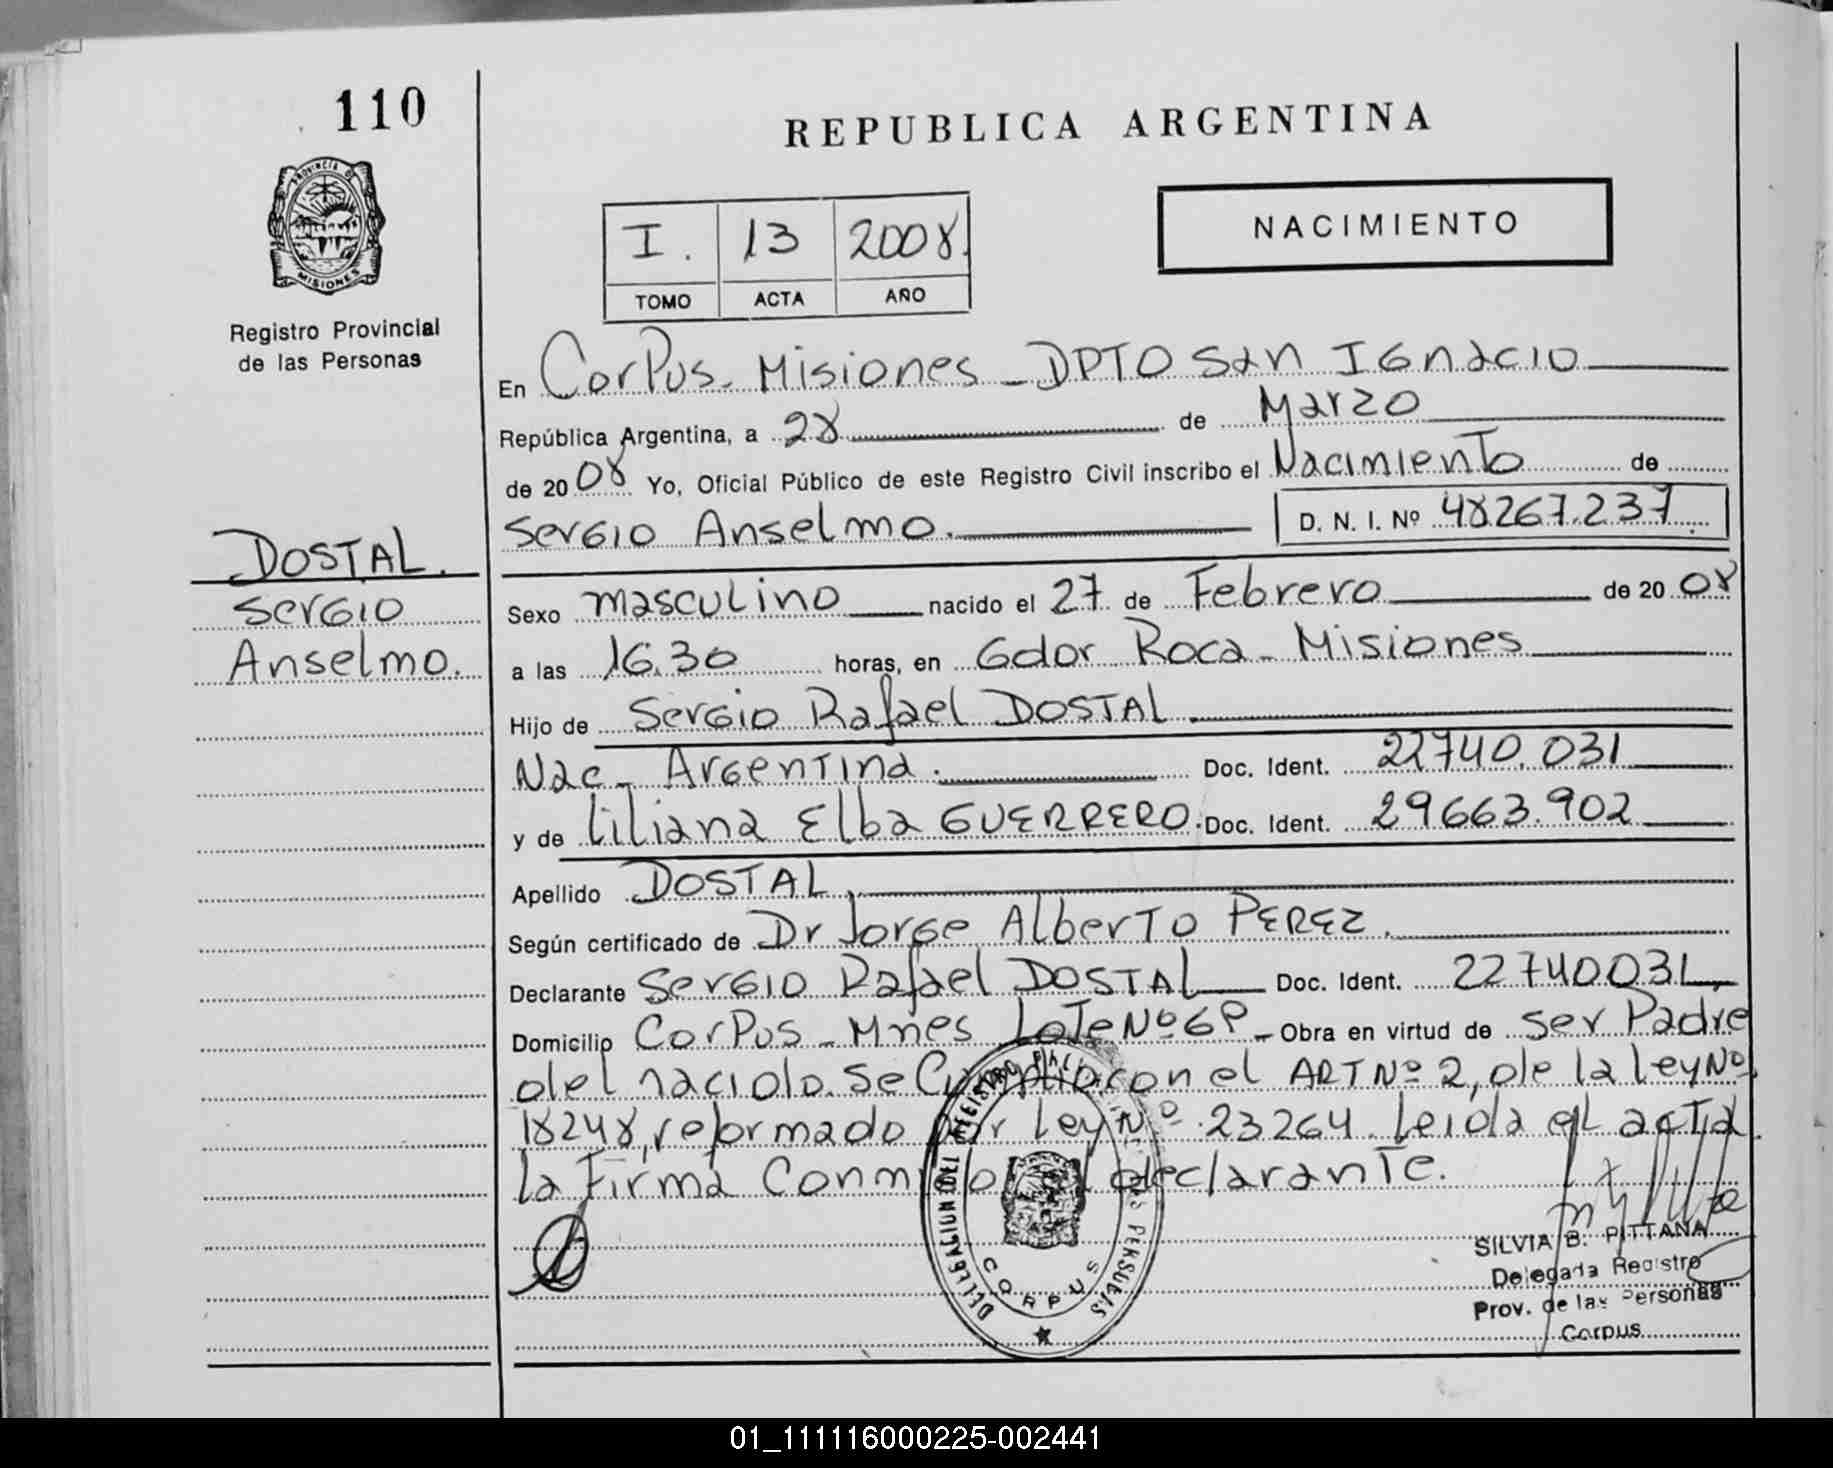 110
REPUBLICA ARGENTINA
PROVINCIA DE
MISIONES
Registro Provincial
de las Personas
I. 13 2008.
TOMO ACTA AÑO
NACIMIENTO
En CorPus. Misiones - DPTO San IGnacio
República Argentina, a 28 de Marzo
de 2008 Yo, Oficial Público de este Registro Civil inscribo el Nacimiento de
SerGio Anselmo. D. N. I. Nº 48267.237
DOSTAL.
SerGio
Anselmo.
Sexo masculino nacido el 27 de Febrero de 2008
a las 16.30 horas, en Gdor Roca - Misiones
Hijo de SerGio Rafael DOSTAL
Nac - ArGentina. Doc. Ident. 22740.031
y de Liliana Elba GUERRERO. Doc. Ident. 29663.902
Apellido DOSTAL.
Según certificado de Dr Jorge Alberto PEREZ.
Declarante SerGio Rafael DOSTAL Doc. Ident. 22740031.
Domicilio CorPus - Mnes Lote Nº 6P - Obra en virtud de ser Padre
del nacido. Se Cumplio con el ART Nº 2, de la ley Nº
18248, reformado por Ley Nº 23264. Leida el acta
la Firma Conmigo el declarante.
DELEGACION DEL REGISTRO LAS PERSONAS
CORPUS
SILVIA B. PITTANA
Delegada Registro
Prov. de las Personas
Corpus
01_111116000225-002441